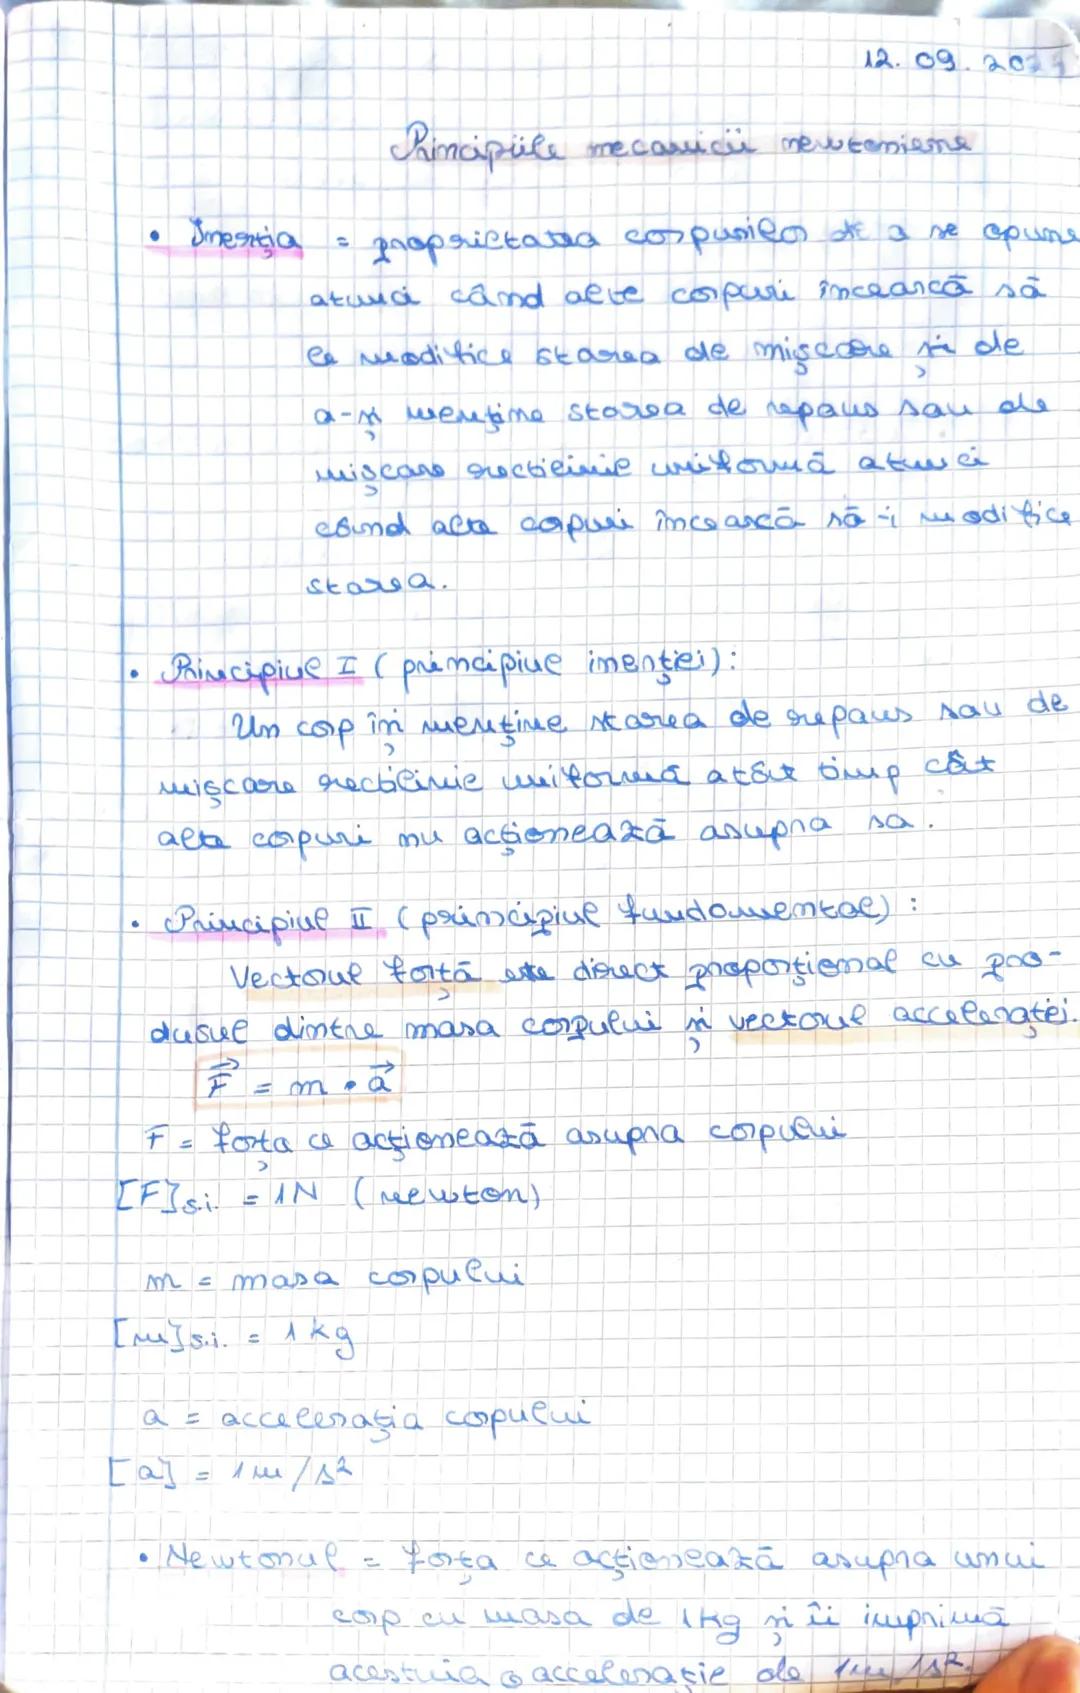 12. 09. 202
Principiile mecanicii newtoniene
• Inerția = proprietatea corpurilor de a se opune
atunci când alte corpuri încearcă să
le modifice starea de mișcare și de
a-și menține starea de repaus sau de
mișcare rectilinie uniformă atunci
când alte corpuri încearcă să-i modifice
starea.
• Principiul I (principiul inerției):
Un corp își menține starea de repaus sau de
mișcare rectilinie uniformă atât timp cât
alte corpuri nu acționează asupra sa.
• Principiul II (principiul fundamental):
Vectorul forță este direct proporțional cu pro-
dusul dintre masa corpului și vectorul accelerației.
F⃗ = m • a⃗
F = forța ce acționează asupra corpului
[F]s.i. = 1N (newton)
m = masa corpului
[m]s.i. = 1kg
a = accelerația corpului
[a] = 1m/s²
• Newtonul = forța ce acționează asupra unui
corp cu masa de 1kg și îi imprimă
acestuia o accelerație de 1m/s².